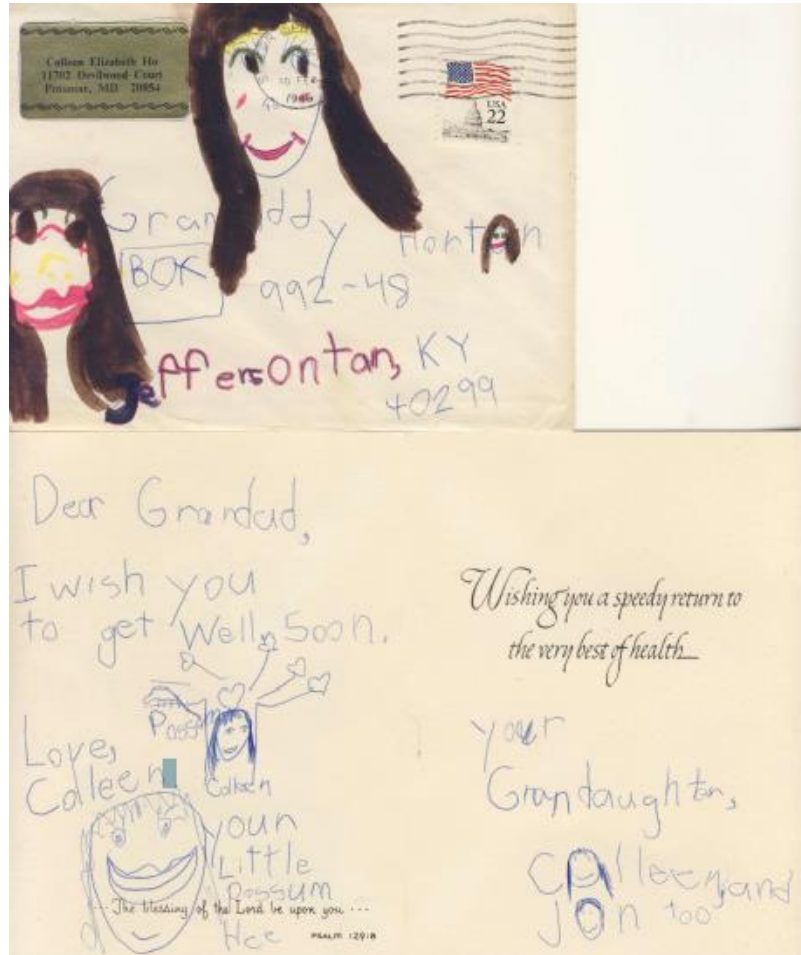 Colleen Elizabeth Ho
11702 Devilwood Court
Potomac, MD 20854
1986
USA
22
Granddy Horton
BOX
992-48
Jeffersontan, KY
40299
Dear Grandad,
I wish you
to get Well Soon.
Possum
Love,
Colleen
Colleen
your
Little
Possum
... The blessing of the Lord be upon you ...
PSALM 129:8
Wishing you a speedy return to
the very best of health...
your
Grandaughter,
Colleen, and
Jon too